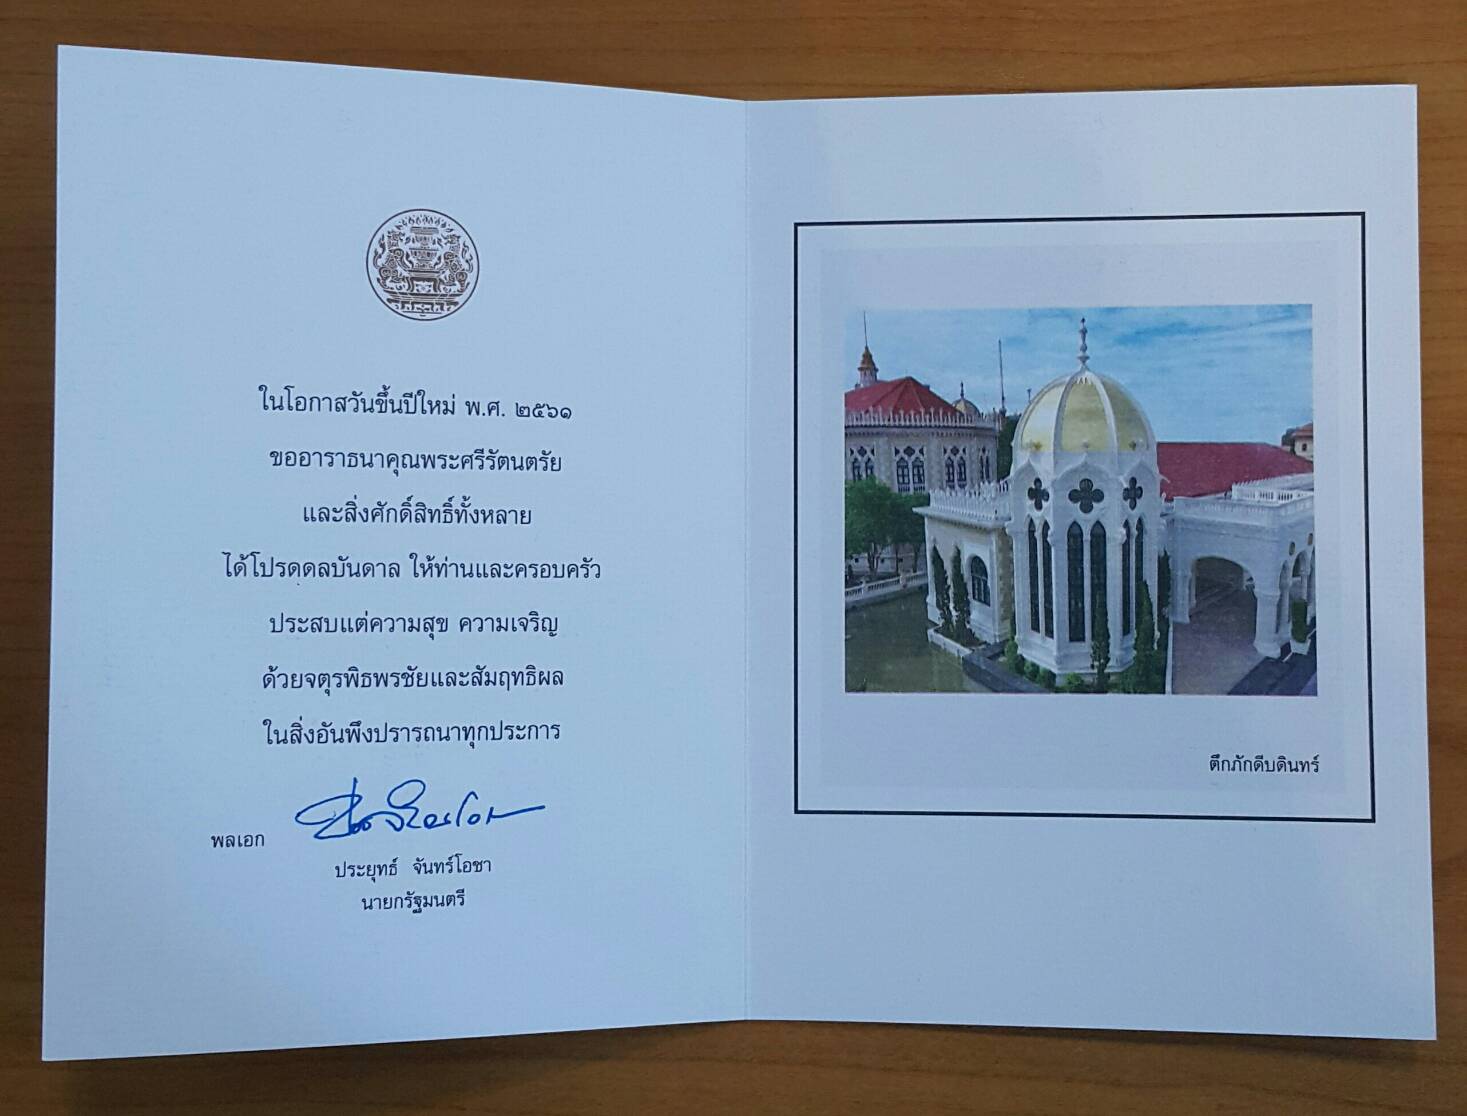 ในโอกาสวันขึ้นปีใหม่ พ.ศ. ๒๕๖๑
ขออาราธนาคุณพระศรีรัตนตรัย
และสิ่งศักดิ์สิทธิ์ทั้งหลาย
ได้โปรดดลบันดาล ให้ท่านและครอบครัว
ประสบแต่ความสุข ความเจริญ
ด้วยจตุรพิธพรชัยและสัมฤทธิผล
ในสิ่งอันพึงปรารถนาทุกประการ
พลเอก
ประยุทธ์ จันทร์โอชา
นายกรัฐมนตรี
ตึกภักดีบดินทร์